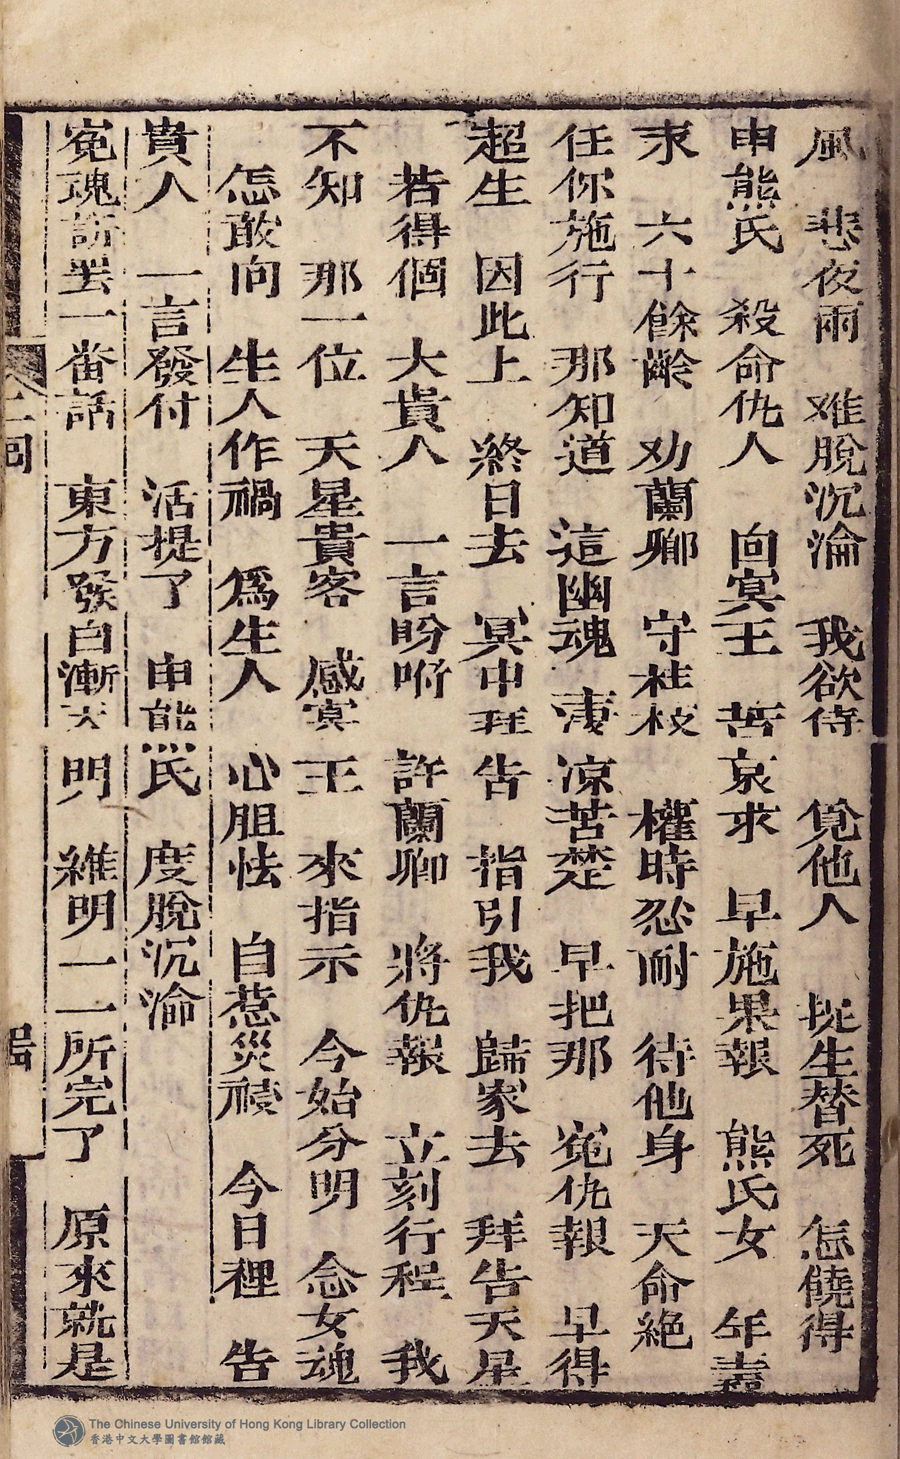 風　悲夜雨　难脫沉淪　我欲待　覓他人　捉生替死　怎饒得
申熊氏　殺命仇人　回冥王　苦哀求　早施果報　熊氏女　年壽
求　六十餘齡　劝蘭卿　守枉枝　權時忍耐　待他身　天命絕
任你施行　那知道　這幽魂　凄凉苦楚　早把那　寃仇報　早得
超生　因此上　終日去　冥中班告　指引我　歸家去　拜告天星
若得個　大貴人　一言盼咐　許蘭卿　將仇報　立刻行程　我
不知　那一位　天星貴客　感冥王　來指示　今始分明　念女魂
怎敢向　生人作禍　爲生人　心胆怯　自惹災禐　今日裡　告
貴人　一言發付　活提了　申熊氏　度脫沉淪
寃魂訴罢一番話　東方發白漸天明　維明一一所完了　原來就是
二囘
The Chinese University of Hong Kong Library Collection
香港中文大學圖書館館藏